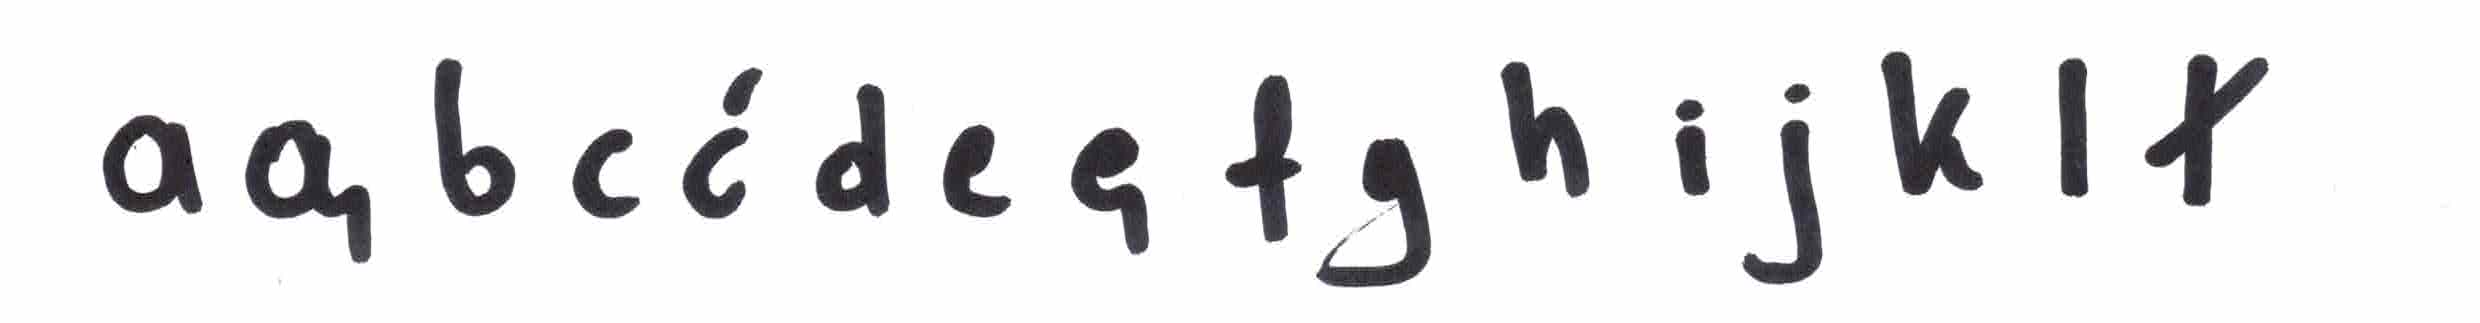 a ą b c ć d e ę f g h i j k l ł